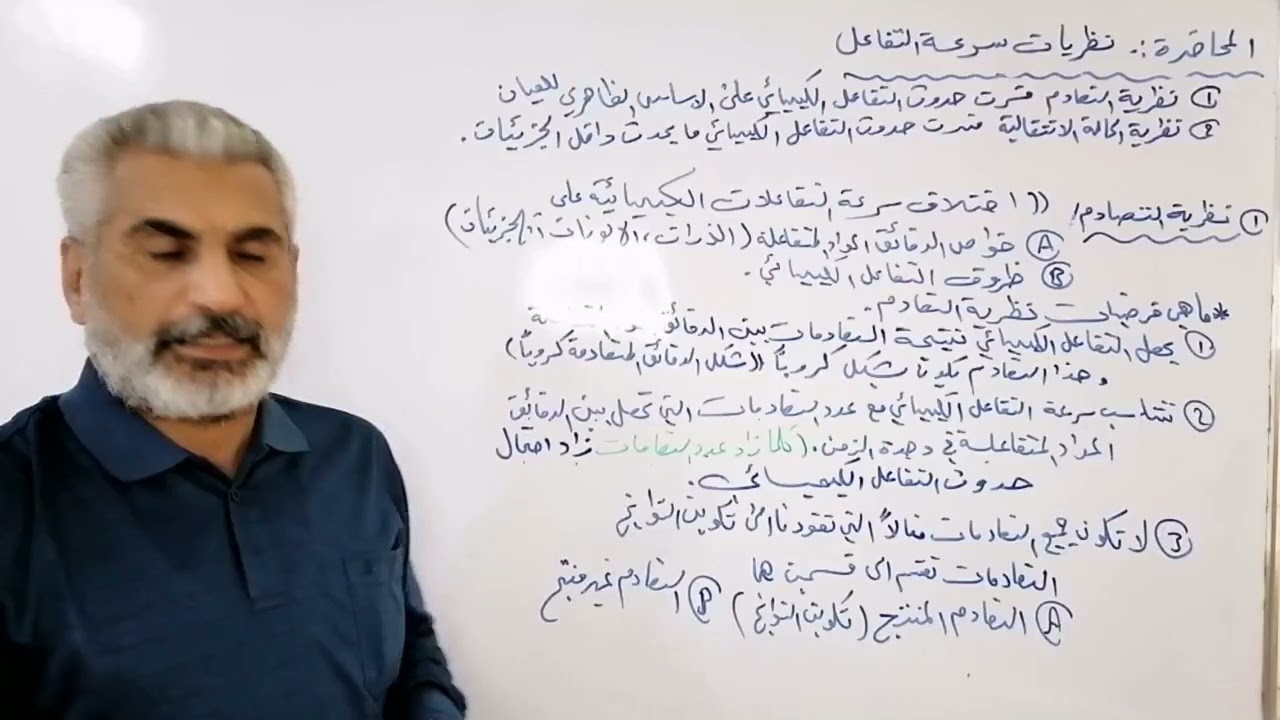 المحاضرة :. نظريات سرعة التفاعل
① نظرية التصادم فسرت حدوث التفاعل الكيميائي على الاساس الظاهري للعيان
② نظرية الحالة الانتقالية فسرت حدوث التفاعل الكيميائي ما يحدث داخل الجزيئات .
① نظرية التصادم / (( اختلاف سرعة التفاعلات الكيميائية على
Ⓐ خواص الدقائق المواد المتفاعلة (الذرات ، الايونات ، الجزيئات)
Ⓑ ظروف التفاعل الكيميائي .
* ما هي فرضيات نظرية التصادم .
① يحصل التفاعل الكيميائي نتيجة التصادمات بين الدقائق
وهذا التصادم يكون بشكل كروياً ((شكل الدقائق المتصادمة كروياً)
② تتناسب سرعة التفاعل الكيميائي مع عدد التصادمات التي تحصل بين الدقائق
المواد المتفاعلة في وحدة الزمن . (كلما زاد عدد التصادمات زاد احتمال
حدوث التفاعل الكيميائي .
③ لا تكون جميع التصادمات فعالاً التي تقودنا الى تكوين النواتج
التصادمات تقسم الى قسمين هما
Ⓐ التصادم المنتج (تكوين النواتج) Ⓑ التصادم غير منتج